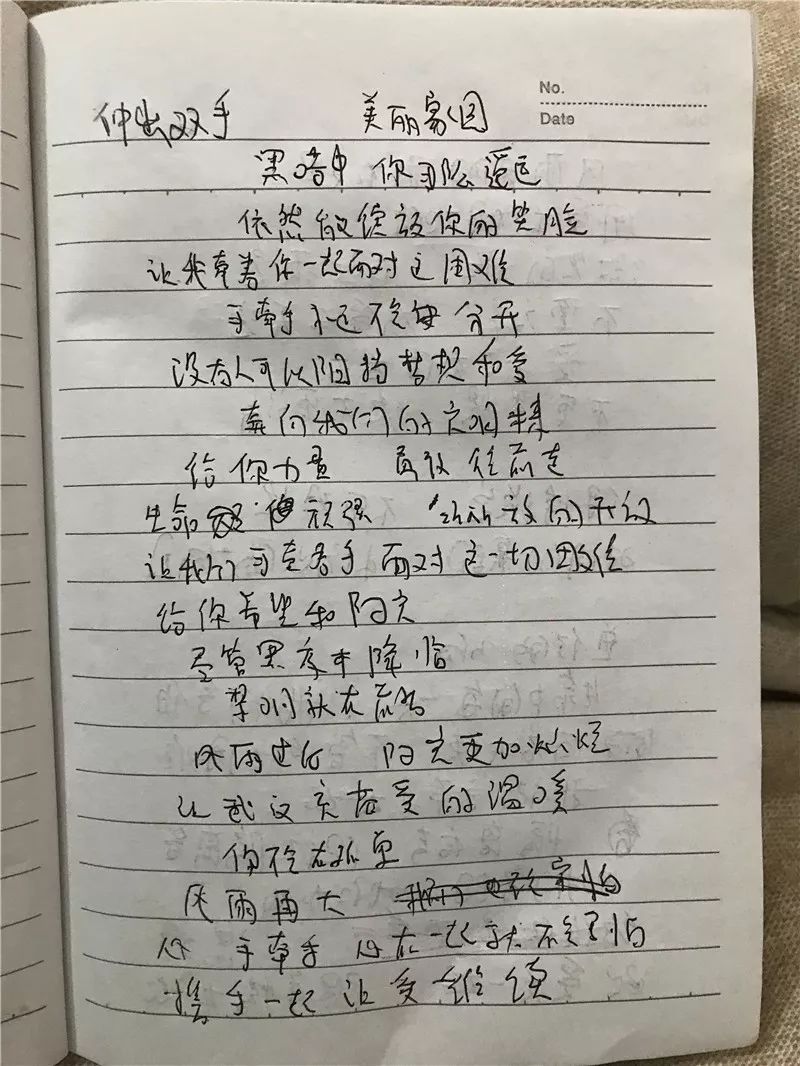 No.
Date
伸出双手 美丽家园
黑暗中 你
依然能绽放你的笑脸
让我牵着你一起面对这困难
手牵手永远不会再分开
没有人可以阻挡梦想和爱
奔向我们的
给你力量 勇敢往前走
生命 顽强 的开放
让我们手牵着手面对这一切困难
给你希望和阳光
尽管黑夜来降临
黎明就在前方
风雨过后 阳光更加灿烂
让武汉充满爱的温暖
你不会孤单
风雨再大
心 手牵手 心在一起就不会害怕
携手一起 让爱继续